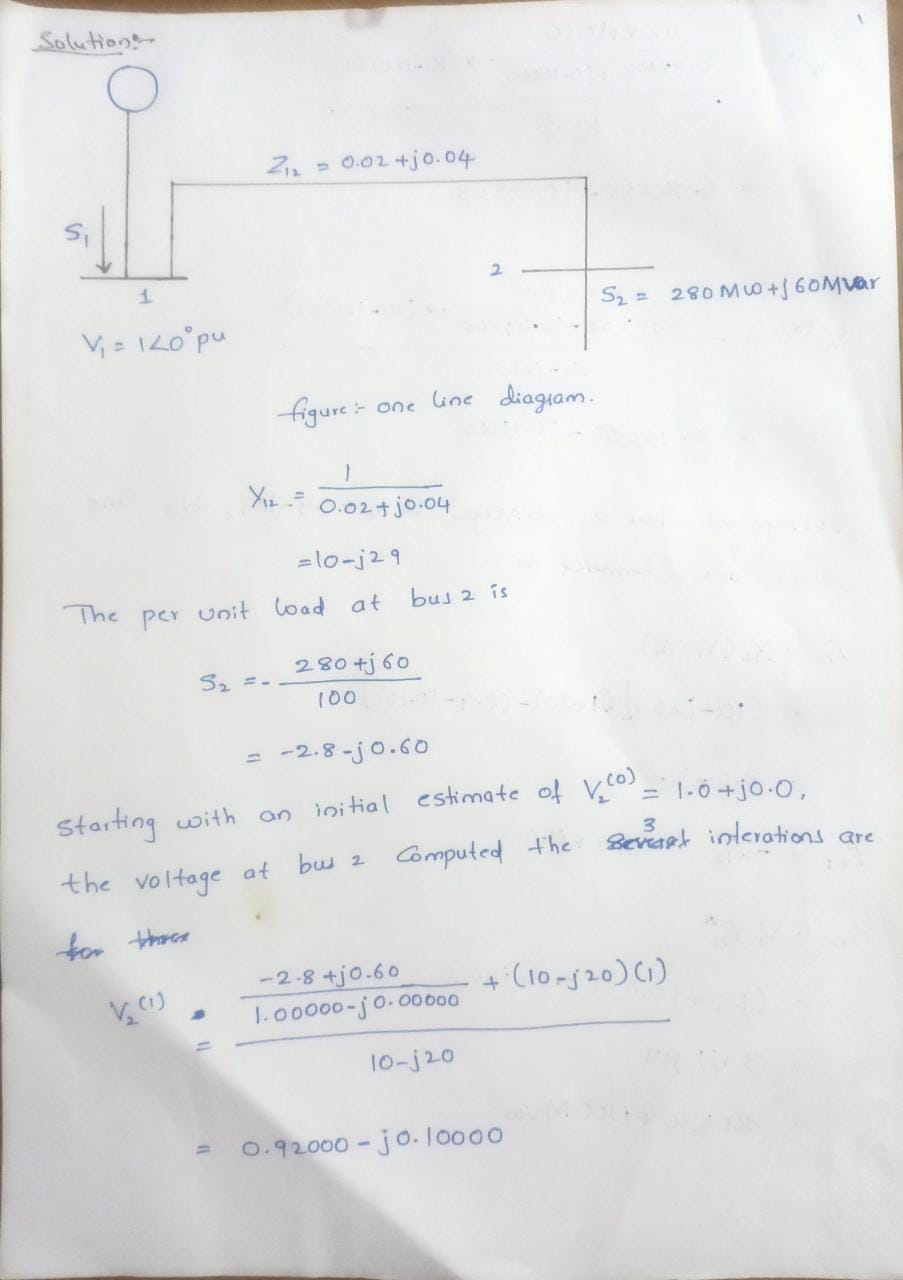 Solution:-
Z₁₂ = 0.02 +j0.04
S₁
1
V₁ = 1∠0° pu
2
S₂ = 280 MW +j 60Mvar
figure:- one line diagram.
Y₁₂ = 1 / 0.02 + j0.04
=10-j29
The per unit load at bus 2 is
S₂ = - 280 +j 60 / 100
= -2.8 -j 0.60
Starting with an initial estimate of V₂⁽⁰⁾ = 1.0 +j0.0,
the voltage at bus 2 Computed the 3 interations are
V₂⁽¹⁾ = -2.8 +j0.60 / 1.00000-j0.00000 + (10-j20)(1) / 10-j20
= 0.92000 - j0.10000